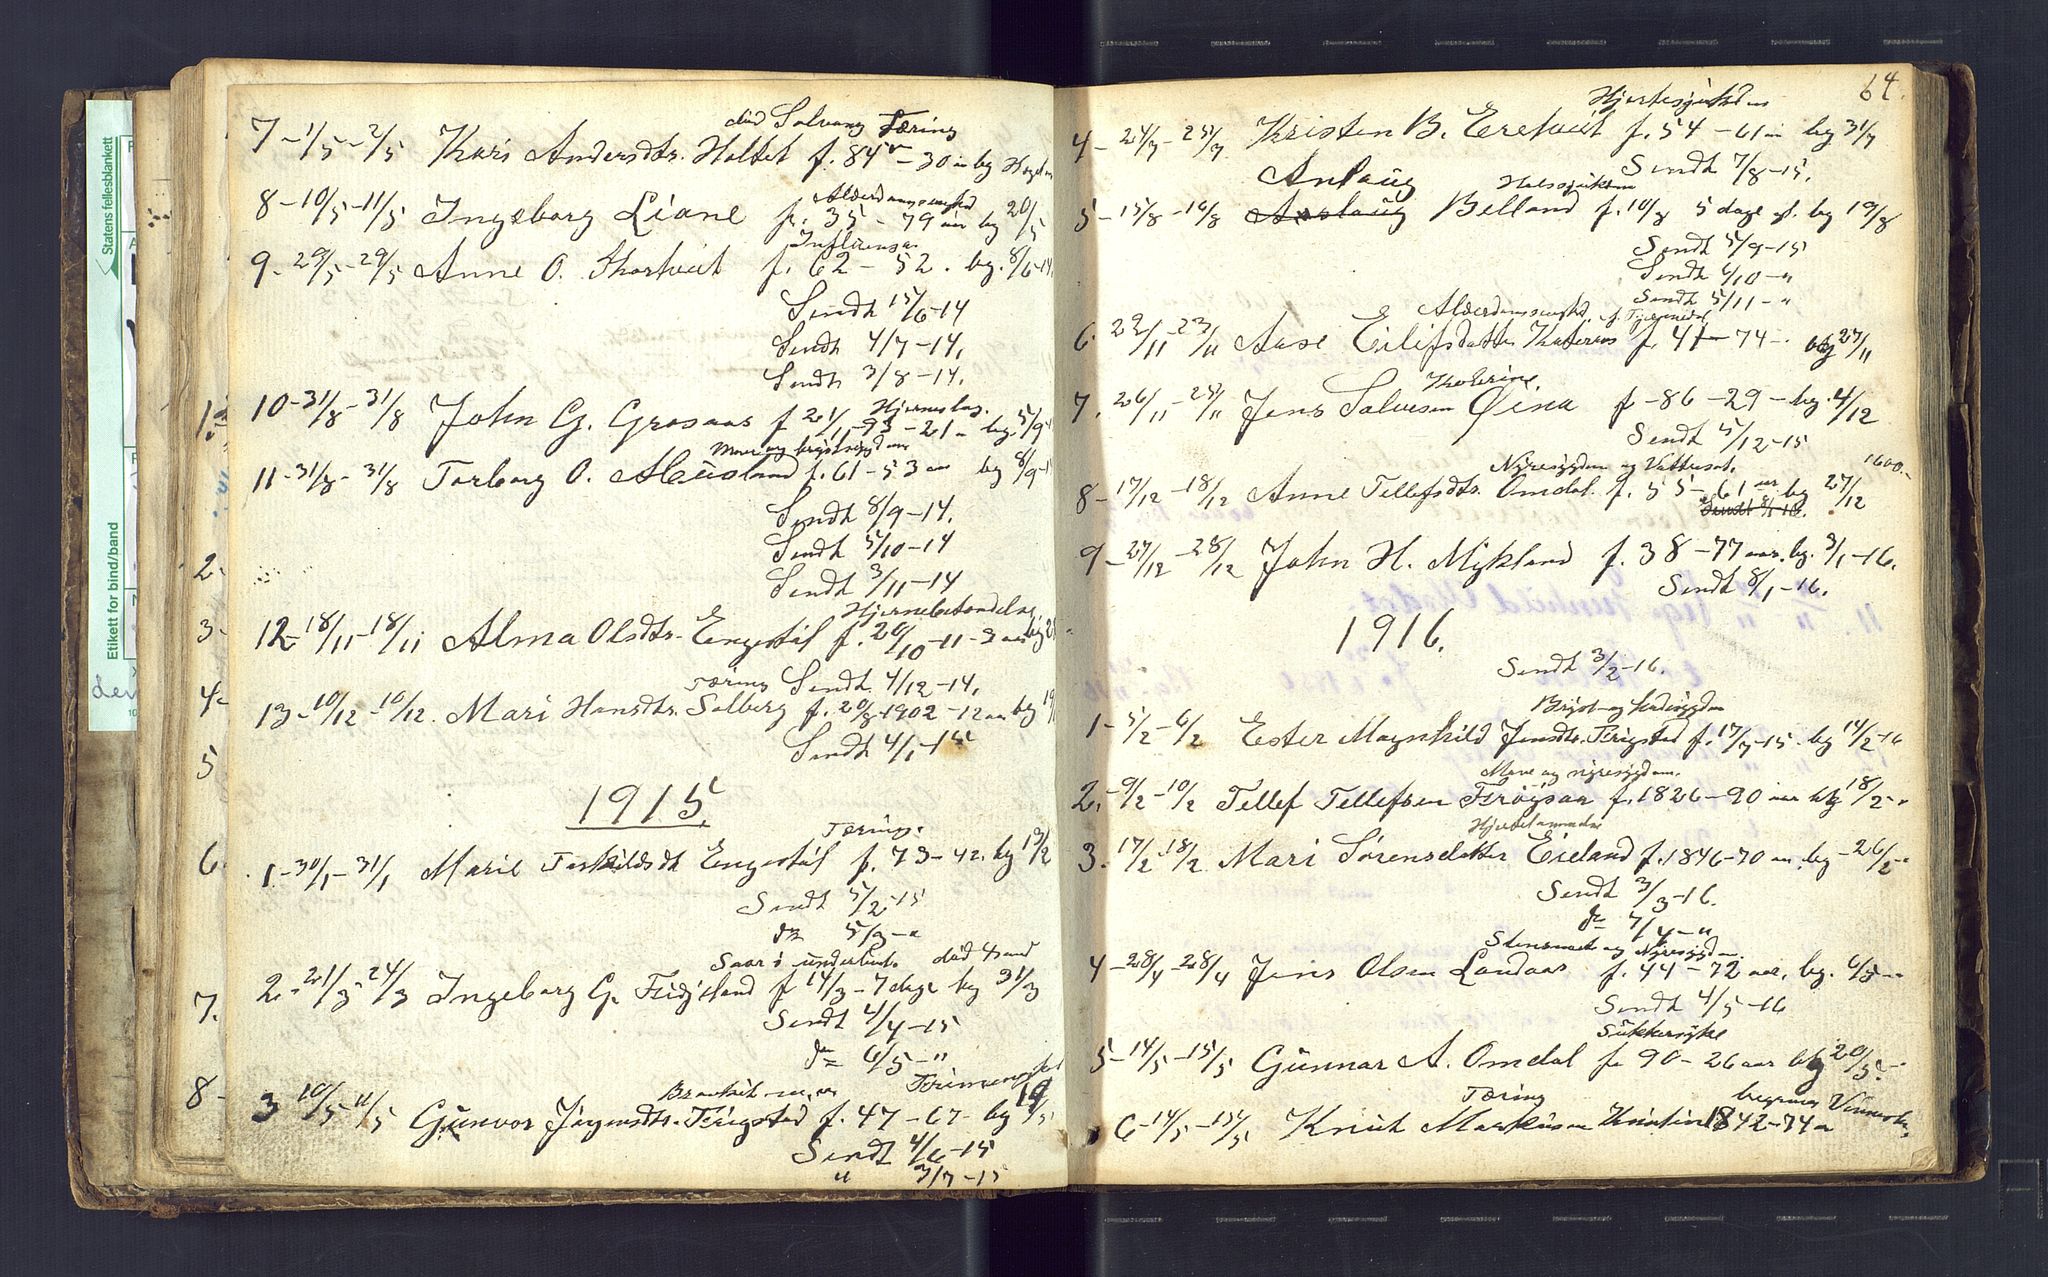 død Solvang Tæring
7 - 1/5 - 2/5 Kari Andersdtr. Holtet f. 84 - 30 begr
8 - 10/5 - 11/5 Ingeborg Liane
Alderdomssvaghed
f. 35 - 79 aar beg 20/5
Influensa
9 - 29/5 - 29/5 Anne O. f. 62 - 52. beg. 8/6-14
Sendt 15/6-14
Sendt 4/7-14.
Sendt 3/8-14.
10 - 31/8 - 31/8 John G. Grosaas f 21/11-93-21 beg. 5/9
11 - 31/8 - 31/8 Torborg O. f. 61 - 53 aar beg 8/9
Sendt 8/9-14.
Sendt 5/10-14
Sendt 3/11-14
Hjernebetændelse
12 - 18/11 - 18/11 Alma Olsdtr. Engestøl f. 20/10-11-3 aar beg
Tæring Sendt 4/12-14.
13 - 10/12 - 10/12. Mari Hansdtr. Solberg f. 20/8-1902-12 aar beg
Sendt 4/1-15
1915.
Tæring.
1 - 30/1 - 31/1 Marie Engestøl f. 73-42. beg 13/2
Sendt 5/2-15
do 5/3-"
Saar i underlivet. død
2. - 21/3 - 24/3 Ingeborg G. f 14/3-7 dage beg 31/3
Sendt 4/4-15
do 6/5-"
3 10/5 - 11/5 Gunvor Jørgensdtr. Trigstad f. 47-67- beg 19/5
Sendt 4/6-15
" 3/7-15
1.
2-
3-
4-
5
6-
7.
8-
64.
Hjertesygdom
4 - 24/7 - 25/7 Kristen B. Eretveit f. 54 - 61 beg 31/7
Sendt 7/8-15.
Anlaug
Halssygdom
5 - 15/8 - 16/8 Aslaug Belland f. 10/8 5 dage gl. beg 19/8
Sendt 5/9-15
Sendt 4/10-"
Sendt 5/11-"
Alderdomssvaghed.
6. 22/11 - 23/11 Aase Eilifsdatter f. 41-74-. beg 27/11
7. 26/11 - 25/11 Jens Salvesen Øina f -86-29- beg. 4/12
Sendt 5/12-15
Nyresygdom og Vattersot. 1600.-
8 - 17/12 - 18/12 Anne Tellefsdtr. Omdal. f. 55-61 aar beg 27/12
Sendt 8/1-16.
9 - 27/12 - 28/12 John H. Mykland f. 38-77 aar. beg. 3/1-16.
Sendt 8/1-16.
1916.
Sendt 3/2-16.
1 - 5/2 - 6/2 Ester Magnhild Jensdtr. Trigstad f. 17/7-15. beg 14/2-16
Mave og nyresygdom.
2. - 9/2 - 10/2 Tellef Tellefsen Frøysaa f. 1826-90 aar beg 18/2-"
3. - 17/2 - 18/2 Mari Sørensdatter Eieland f. 1846-70 aar. beg -26/2-"
Sendt 3/3-16.
do 7/4-"
4 - 28/4 - 28/4 Jens Olsen Landaas f. 44-72 aar. beg. 6/5-"
Sendt 4/5-16
Sukkersyke
5 - 14/5 - 15/5 Gunnar A. Omdal f. 90-26 aar beg 20/5-
Tæring begraves Vennesla.
6 - 14/5 - 15/5 Knut Markusen 1842-74
Statens fellesblankett
Etikett for bind/band